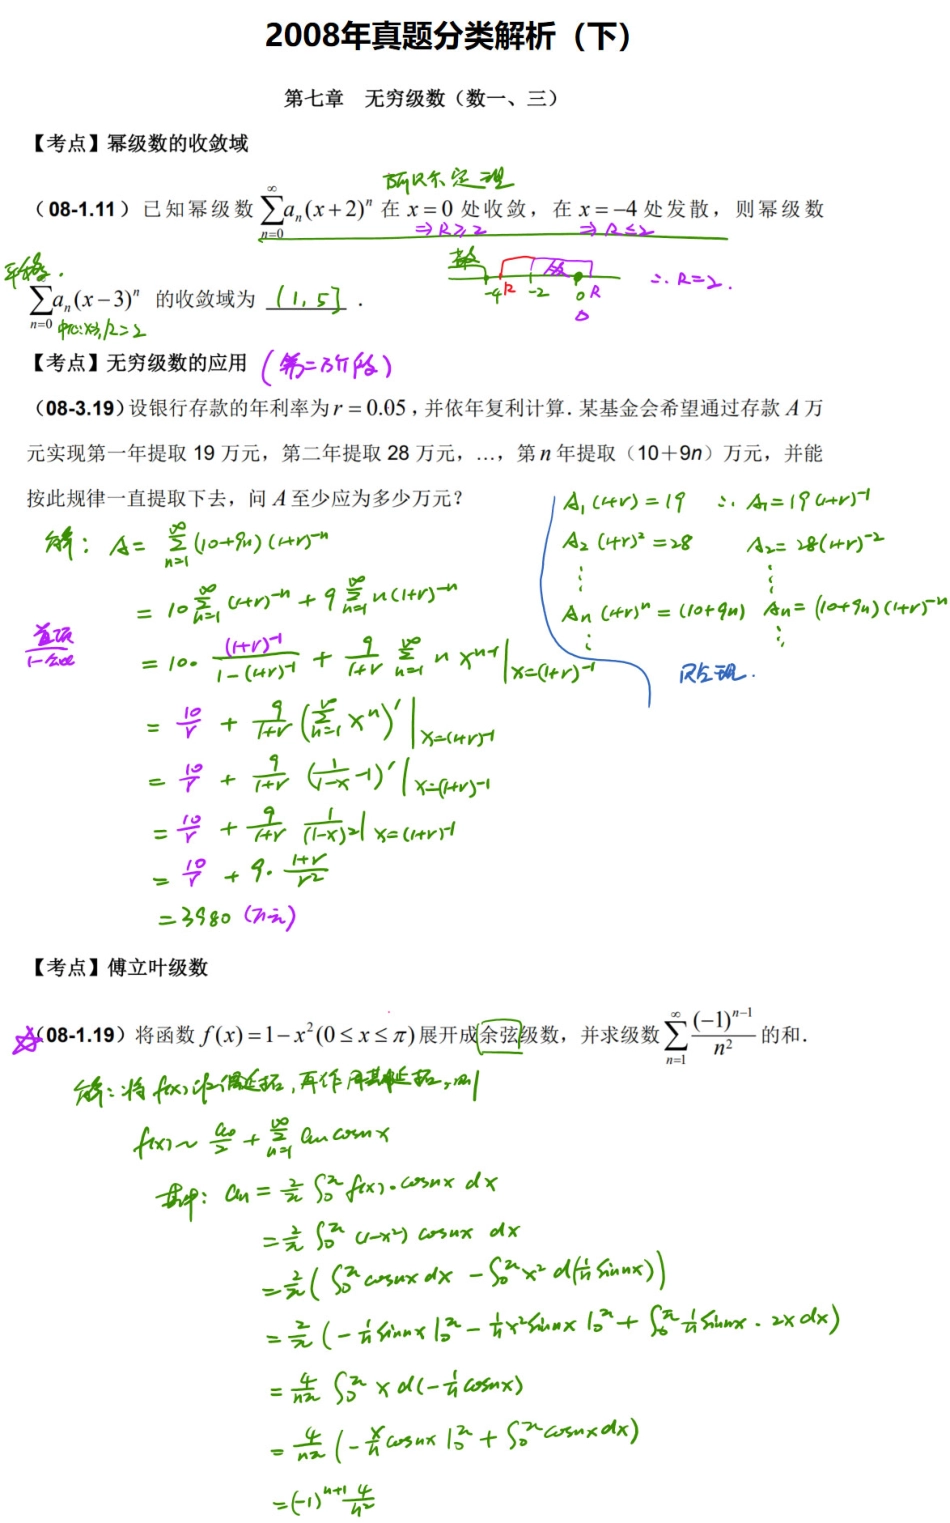 2008年真题分类解析（下）
第七章 无穷级数（数一、三）
【考点】幂级数的收敛域
阿贝尔定理
（08-1.11）已知幂级数 ∑_{n=0}^{∞} a_n(x+2)^n 在 x=0 处收敛，在 x=−4 处发散，则幂级数
⇒R≥2 ⇒R≤2
-4 R -2 0 R
∴R=2.
平移.
∑_{n=0}^{∞} a_n(x−3)^n 的收敛域为 (1,5] .
中心:x=3,R=2
【考点】无穷级数的应用 (第二阶段)
（08-3.19）设银行存款的年利率为 r=0.05，并依年复利计算. 某基金会希望通过存款 A 万
元实现第一年提取 19 万元，第二年提取 28 万元，…，第 n 年提取（10+9n）万元，并能
按此规律一直提取下去，问 A 至少应为多少万元？
A₁(1+r)=19 ∴A₁=19(1+r)^{-1}
A₂(1+r)²=28 A₂=28(1+r)^{-2}
⋮ ⋮
A_n(1+r)^n=(10+9n) A_n=(10+9n)(1+r)^{-n}
⋮ ⋮
解：A=∑_{n=1}^{∞}(10+9n)(1+r)^{-n}
=10∑_{n=1}^{∞}(1+r)^{-n}+9∑_{n=1}^{∞}n(1+r)^{-n}
首项/1-公比
=10·(1+r)^{-1}/(1-(1+r)^{-1})+9/(1+r)∑_{n=1}^{∞}n x^{n-1}|x=(1+r)^{-1}
=10/r+9/(1+r)(∑_{n=1}^{∞}x^n)'|x=(1+r)^{-1}
=10/r+9/(1+r)(1/(1-x)-1)'|x=(1+r)^{-1}
=10/r+9/(1+r) 1/(1-x)²|x=(1+r)^{-1}
=10/r+9·(1+r)/r²
=3980(万元)
【考点】傅立叶级数
☆（08-1.19）将函数 f(x)=1−x²(0≤x≤π)展开成余弦级数，并求级数 ∑_{n=1}^{∞} (−1)^{n−1}/n² 的和.
解：将f(x)作偶延拓,再作周期延拓,则
f(x)~a₀/2+∑_{n=1}^{∞}a_n cosnx
其中：a_n=2/π∫₀^π f(x)·cosnx dx
=2/π∫₀^π(1-x²)cosnx dx
=2/π(∫₀^π cosnx dx-∫₀^π x² d(1/n sinnx))
=2/π(-1/n sinnx|₀^π-1/n x² sinnx|₀^π+∫₀^π 1/n sinnx·2x dx)
=4/nπ∫₀^π x d(-1/n cosnx)
=4/nπ(-x/n cosnx|₀^π+∫₀^π cosnx dx)
=(-1)^{n+1} 4/n²